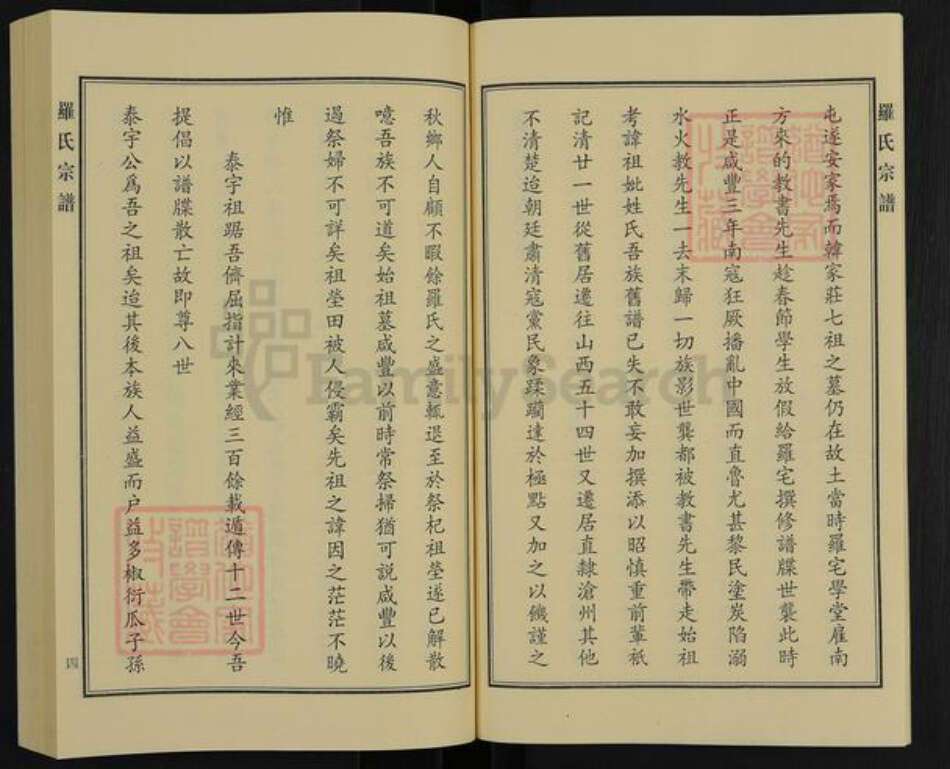 羅氏宗譜
屯遂安家焉而韓家莊七祖之墓仍在故土當時羅宅學堂雇南
方來的教書先生趁春節學生放假給羅宅撰修譜牒世襲此時
正是咸豐三年南寇狂厥播亂中國而直魯尤甚黎民塗炭陷溺
水火教先生一去末歸一切族影世襲都被教書先生帶走始祖
考諱祖妣姓氏吾族舊譜已失不敢妄加撰添以昭慎重前輩祇
記清廿一世從舊居遷往山西五十四世又遷居直隸滄州其他
不清楚迨朝廷肅清寇黨民象蹂躪達於極點又加之以饑謹之
秋鄉人自顧不暇餘羅氏之盛意輒退至於祭杞祖塋遂已解散
噫吾族不可道矣始祖墓咸豐以前時常祭掃猶可説咸豐以後
過祭婦不可詳矣祖塋田被人侵霸矣先祖之諱因之茫茫不曉
惟
泰宇祖踞吾儕屈指計來業經三百餘載遁傳十二世今吾
提倡以譜牒散亡故即尊八世
泰宇公爲吾之祖矣迨其後本族人益盛而户益多椒衍瓜子孫
羅氏宗譜
四
FamilySearch